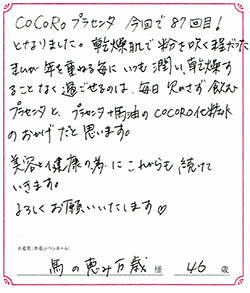 COCORO プラセンタ 今回で87回目!
となりました。乾燥肌で粉を吹く程だった
私が年を重ねる毎にいつも潤い、乾燥す
ることなく過ごせるのは、毎日欠かさず飲む
プラセンタと、プラセンタ+馬油のCOCORO化粧水
のおかげだと思います。
美容と健康の為にこれからも続けて
いきます。
よろしくお願いいたします♡
お名前(本名orペンネーム)
馬の恵み万歳 様 46 歳